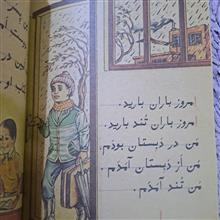 امروز باران بارید.
امروز باران تُند بارید.
مَن دَر دَبِستان بودَم.
مَن اَز دَبِستان آمَدَم.
مَن تُند آمَدَم.